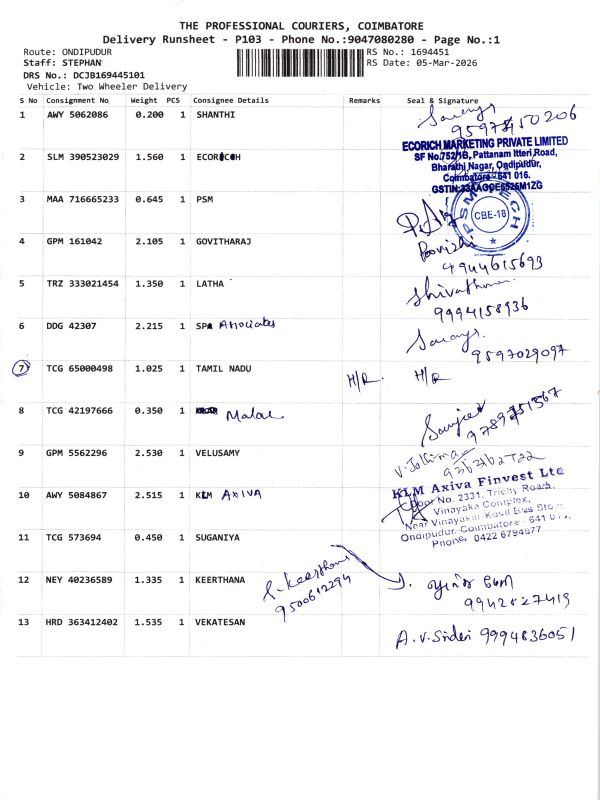 THE PROFESSIONAL COURIERS, COIMBATORE
Delivery Runsheet - P103 - Phone No.:9047080280 - Page No.:1
Route: ONDIPUDUR RS No.: 1694451
Staff: STEPHAN RS Date: 05-Mar-2026
DRS No.: DCJB169445101
Vehicle: Two Wheeler Delivery
S No Consignment No Weight PCS Consignee Details Remarks Seal & Signature
1 AWY 5062086 0.200 1 SHANTHI
2 SLM 390523029 1.560 1 ECORICH
ECORICH MARKETING PRIVATE LIMITED
SF No.752/1B, Pattanam Itteri Road,
Bharathi Nagar, Ondipudur,
Coimbatore - 641 016.
3 MAA 716665233 0.645 1 PSM
PSM TECH CBE-16
4 GPM 161042 2.105 1 GOVITHARAJ
4944615693
5 TRZ 333021454 1.350 1 LATHA
9994158936
6 DDG 42307 2.215 1 SPA Associates
9597029097
7 TCG 65000498 1.025 1 TAMIL NADU H/R. H/R.
8 TCG 42197666 0.350 1 Malar
9 GPM 5562296 2.530 1 VELUSAMY
10 AWY 5084867 2.515 1 KLM AXIVA
KLM Axiva Finvest Ltd
Door No. 2331, Trichy Road,
Vinayaka Complex,
Near Vinayakar Kovil Bus Stop,
Ondipudur, Coimbatore - 641
Phone: 0422 6794677
11 TCG 573694 0.450 1 SUGANIYA
12 NEY 40236589 1.335 1 KEERTHANA
9500612294
13 HRD 363412402 1.535 1 VEKATESAN
9994836051